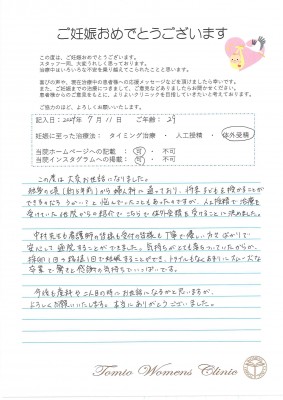 ご妊娠おめでとうございます
この度は、ご妊娠おめでとうございます。
スタッフ一同、大変うれしく思っております。
治療中はいろいろな不安を乗り越えてこられたことと思います。
喜びの声や、現在治療中の患者様への応援メッセージなどを頂けましたら幸いです。
また、ご妊娠までの治療につきまして、ご意見などありましたらお聞かせください。
患者様からのご意見をもとに、よりよいクリニックを目指していきたいと考えております。
ご協力のほど、よろしくお願いいたします。
記入日：2024年 7月 11日 ご年齢：29
妊娠に至った治療法： タイミング治療 ・ 人工授精 ・ 体外受精
当院ホームページへの記載： 可 ・ 不可
当院インスタグラムへの掲載： 可 ・ 不可
この度は大変お世話になりました。
から婦人科に通っており、将来子どもを授かることが
できるのだろうか…？と悩んでいたこともあったのですが、人工授精で治療を
受けていた他院からの紹介でこちらで体外受精を受けることに決めました。
中村先生も看護師の皆様も受付の皆様も丁寧で優しい方ばかりで
安心して通院することができました。気持ちがとても落ちついていたからか、
採卵1回の移植1回で妊娠することができ、トライブルもなくあまりにスムーズな
卒業で驚きと感謝の気持ちでいっぱいです。
今後も産科や二人目の時にお世話になるかと思いますが、
よろしくお願いいたします。本当にありがとうございました。
Tomio Womens Clinic